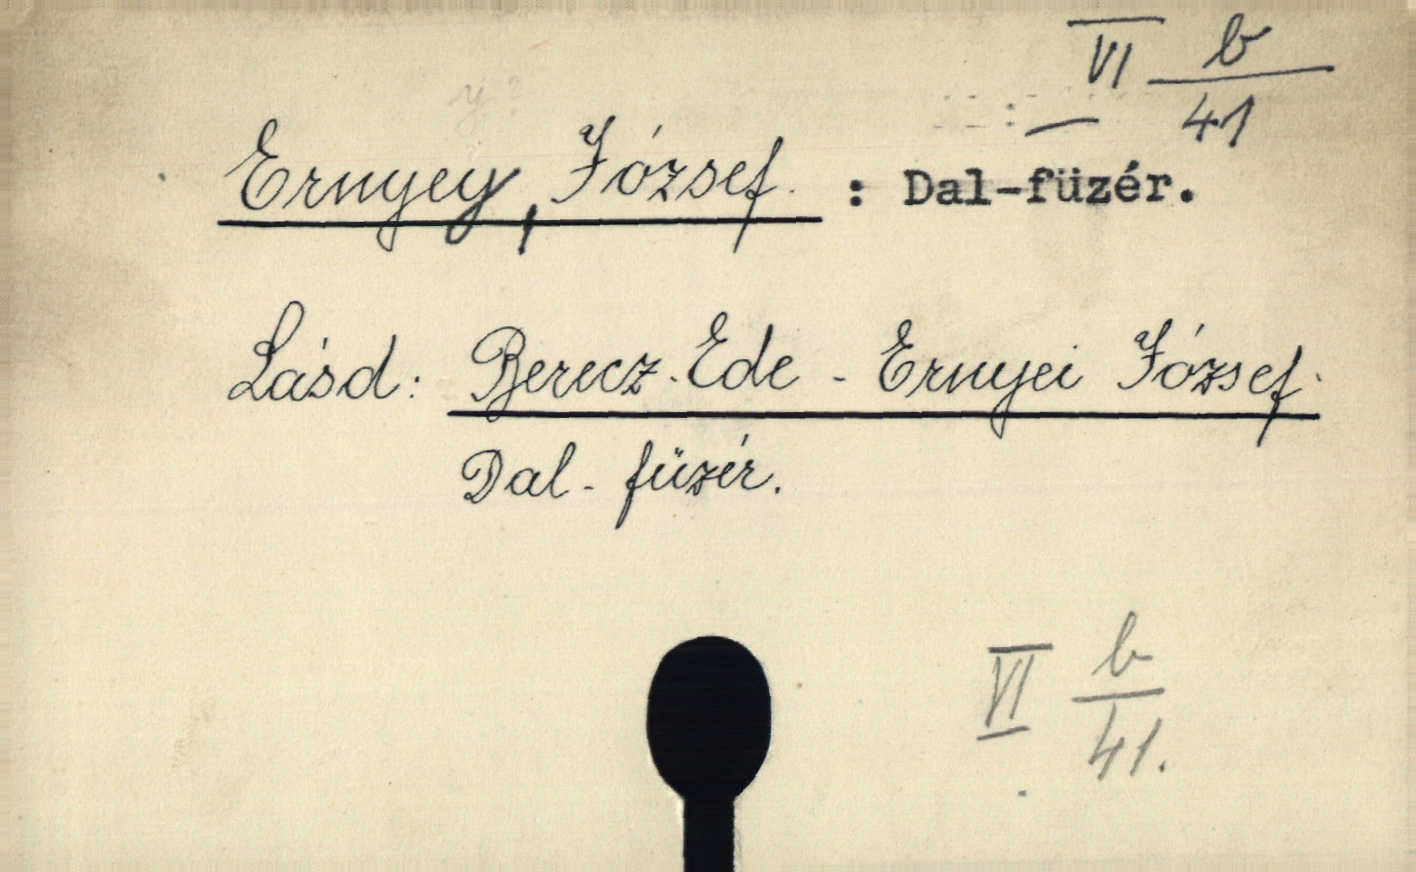 VI b
41
Ernyey, József. : Dal-füzér.
Lásd: Berecz Ede - Ernyei József.
Dal-füzér.
VI b
41.